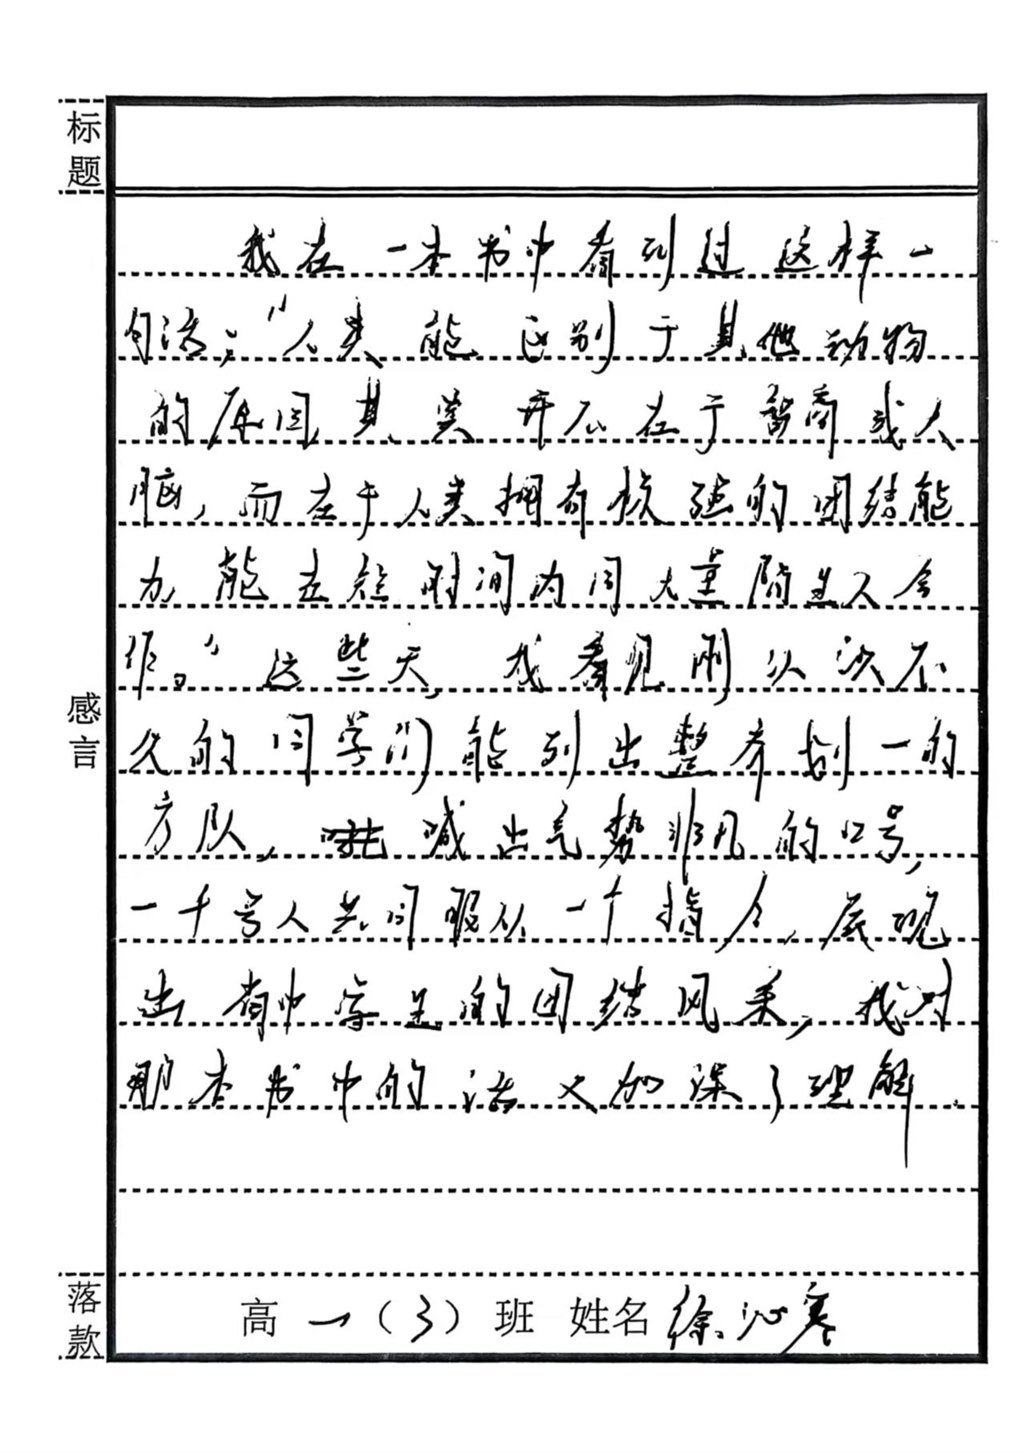 标题
我在一本书中看到过这样一
句话："人类能区别于其他动物
的原因其实并不在于智商或大
脑，而在于人类拥有极强的团结能
力，能在短时间内同大量陌生人合
作。"这些天，我看见刚认识不
久的同学们能列出整齐划一的
方队，喊出气势非凡的口号，
一千号人共同服从一个指令，展现
出省中学生的团结风采，我对
那本书中的话又加深了理解.
感言
落款
高一(3)班 姓名 徐沁